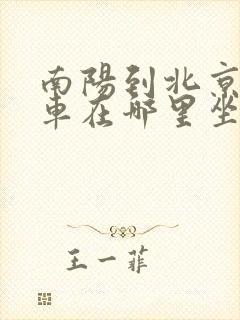 南陽到北京
車在哪里坐
王一菲